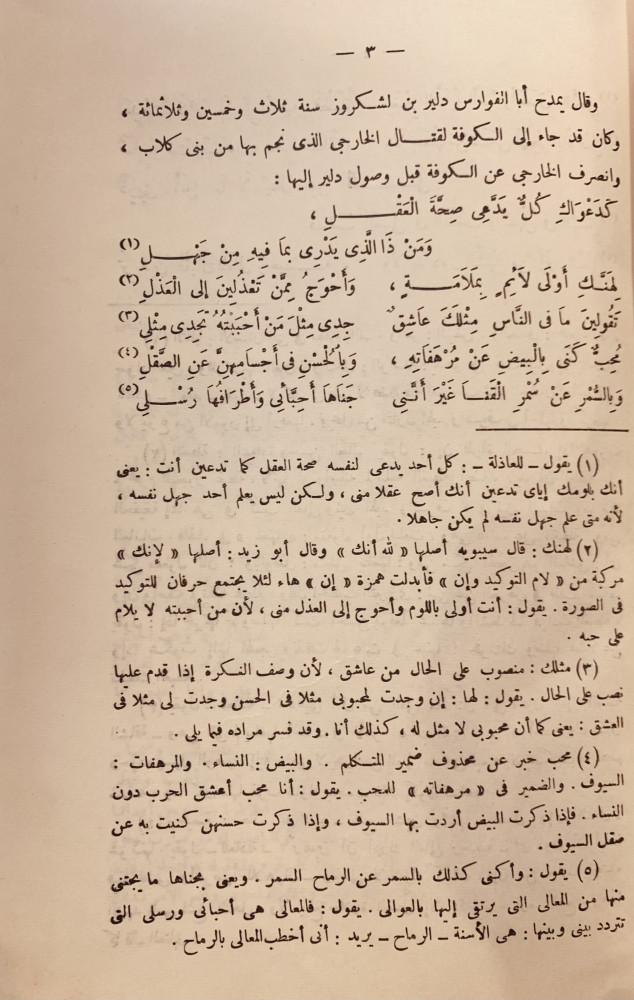 — ٣ —
وقال يمدح أبا الفوارس دلير بن لشكروز سنة ثلاث وخمسين وثلاثمائة ،
وكان قد جاء إلى الكوفة لقتال الخارجى الذى نجم بها من بنى كلاب ،
وانصرف الخارجى عن الكوفة قبل وصول دلير إليها :
كَدَعْوَاكِ كُلٌّ يَدَّعِى صِحَّةَ الْعَقْلِ ،
وَمَنْ ذَا الَّذِى يَدْرِى بِمَا فِيهِ مِنْ جَهْلِ (١)
لِهَنَّكِ أَوْلَى لاَئِمٍ بِمَلاَمَةٍ ، وَأَحْوَجُ مِمَّنْ تَعْذُلِينَ إلى الْعَذْلِ (٢)
تَقُولِينَ مَا فى النَّاسِ مِثْلَكَ عَاشِقٌ جِدِى مِثْلَ مَنْ أَحْبَبْتُهُ تَجِدِى مِثْلِى (٣)
مُحِبٌّ كَنَى بِالْبِيضِ عَنْ مُرْهَفَاتِهِ ، وَبِالْحُسْنِ فى أَجْسَامِهِنَّ عَنِ الصَّقْلِ (٤)
وَبِالسُّمْرِ عَنْ سُمْرِ الْقَنَا غَيْرَ أَنَّنِى جَنَاهَا أَحِبَّائِى وَأَطْرَافُهَا رُسْلِى (٥)
(١) يقول ــ للعاذلة ــ : كل أحد يدعى لنفسه صحة العقل كما تدعين أنت : يعنى
أنك بلومك إياى تدعين أنك أصح عقلا منى ، ولكن ليس يعلم أحد جهل نفسه ،
لأنه متى علم جهل نفسه لم يكن جاهلا .
(٢) لهنك : قال سيبويه أصلها « لله أنك » وقال أبو زيد : أصلها « لإنك »
مركبة من « لام التوكيد وإن » فأبدلت همزة « إن » هاء لئلا يجتمع حرفان للتوكيد
فى الصورة . يقول : أنت أولى باللوم وأحوج إلى العذل منى ، لأن من أحببته لا يلام
على حبه .
(٣) مثلك : منصوب على الحال من عاشق ، لأن وصف النكرة إذا قدم عليها
نصب على الحال . يقول : لها : إن وجدت لمحبوبى مثلا فى الحسن وجدت لى مثلا فى
العشق : يعنى كما أن محبوبى لا مثل له ، كذلك أنا . وقد فسر مراده فيما يلى .
(٤) محب خبر عن محذوف ضمير المتكلم . والبيض : النساء . والمرهفات :
السيوف . والضمير فى « مرهفاته » للمحب . يقول : أنا محب أعشق الحرب دون
النساء . فإذا ذكرت البيض أردت بها السيوف ، وإذا ذكرت حسنهن كنيت به عن
صقل السيوف .
(٥) يقول : وأكنى كذلك بالسمر عن الرماح السمر . ويعنى بجناها ما يجتنى
منها من المعالى التى يرتقى إليها بالعوالى . يقول : فالمعالى هى أحبائى ورسلى التى
تتردد بينى وبينها : هى الأسنة ــ الرماح ــ يريد : أنى أخطب المعالى بالرماح .